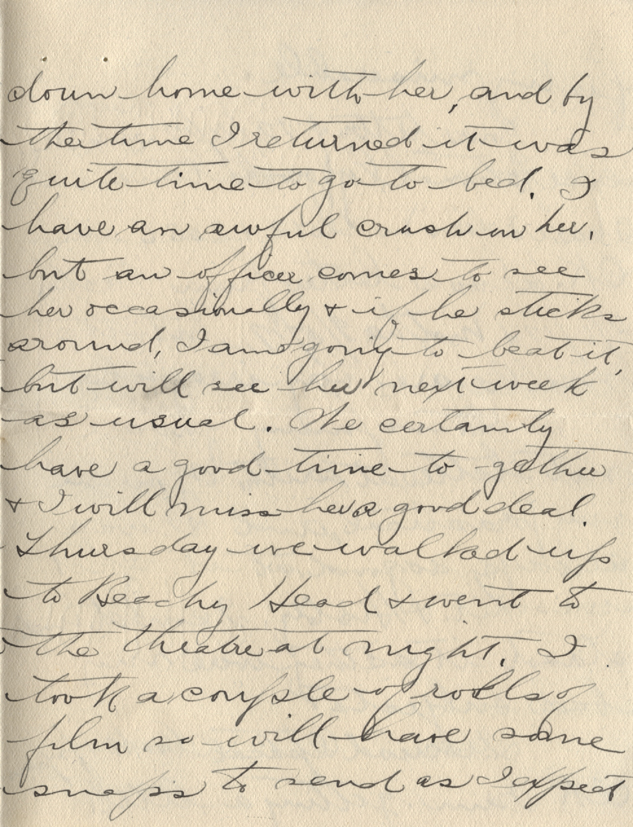 down home with her, and by
the time I returned it was
quite time to go to bed. I
have an awful crush on her,
but an officer comes to see
her occasionally & if he sticks
around, I am going to beat it,
but will see her next week
as usual. We certainly
have a good time to-gether
& I will miss her a good deal.
Thursday we walked up
to Beachy Head & went to
the theatre at night. I
took a couple of rolls of
film so will have some
snaps to send as I expect